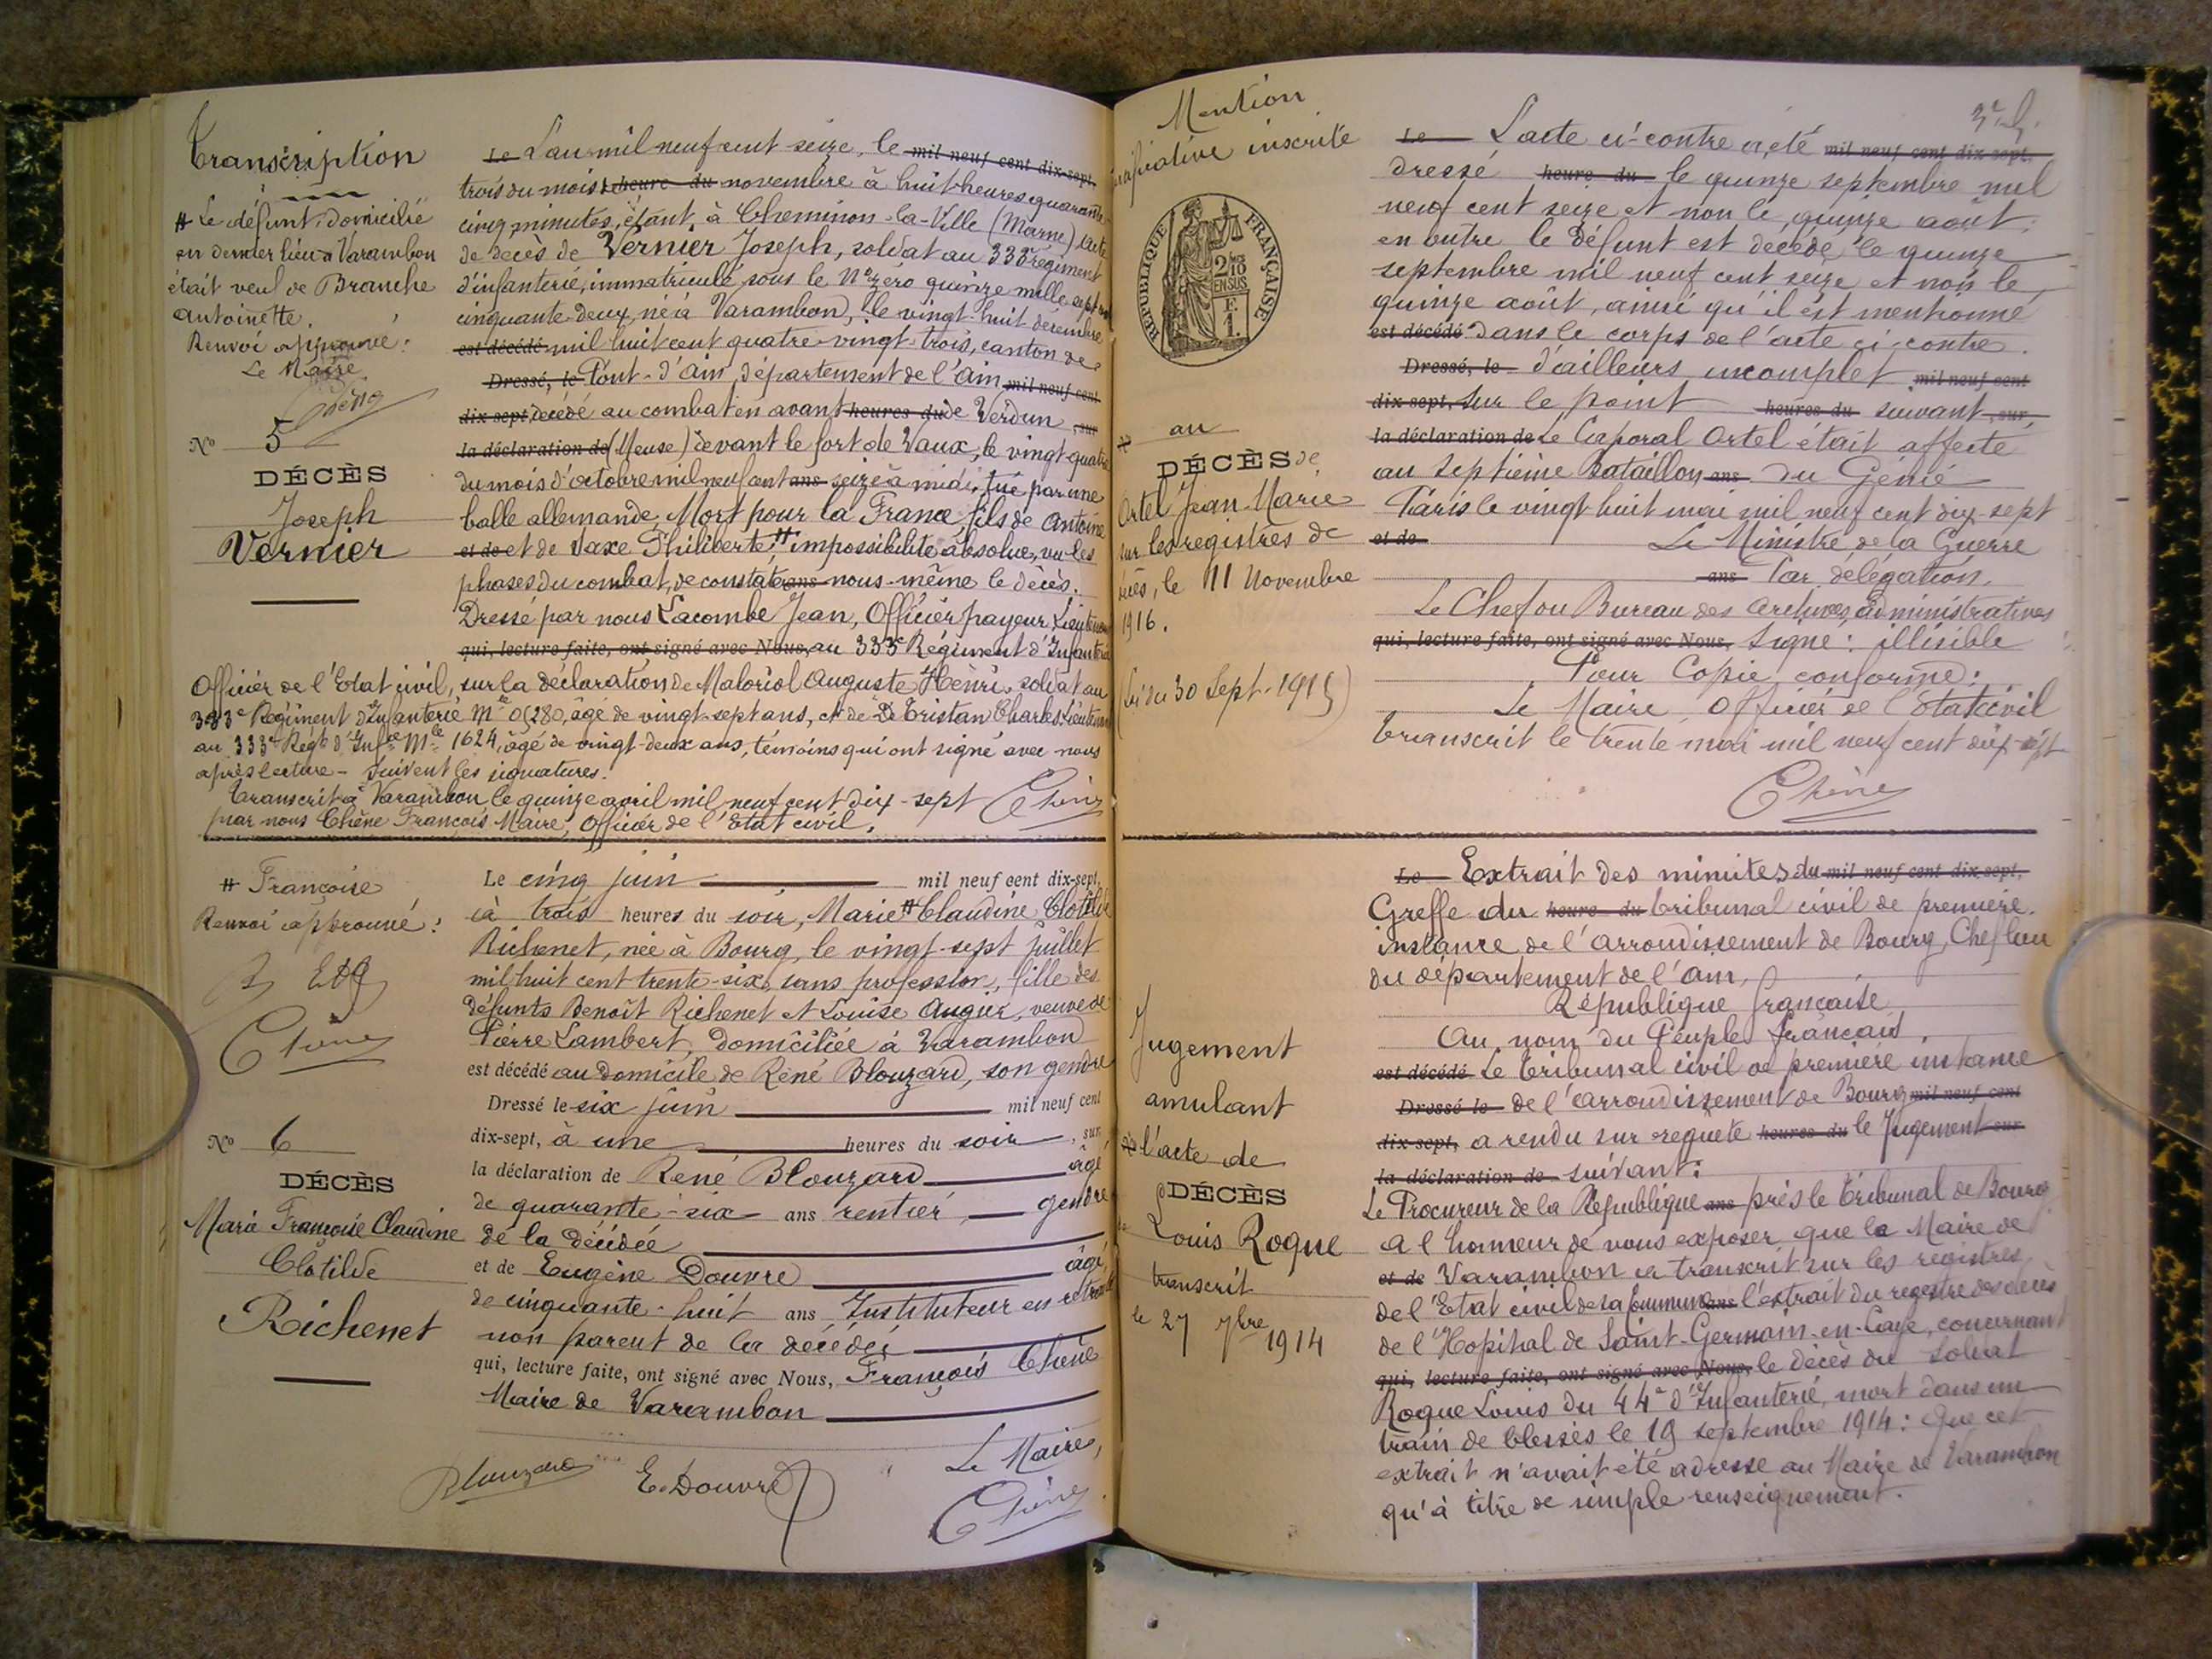 Transcription
# Le défunt domicilié
en dernier lieu à Varambon
était veuf de Branche
Antoinette.
Renvoi approuvé :
Le Maire
Chêne
N° 5
DÉCÈS
Joseph
Vernier
Le L'an mil neuf cent seize, le mil neuf cent dix-sept,
trois du mois heure du novembre à huit heures quarante
cinq minutes, étant à Cheminon-la-Ville (Marne) acte
de décès de Vernier Joseph, soldat au 333e régiment
d'infanterie, immatriculé sous le N° zéro quinze mille sept cent
cinquante-deux, né à Varambon, le vingt-huit décembre
est décédé mil huit cent quatre-vingt-trois, canton de
Dressé, le Pont-d'Ain, département de l'Ain mil neuf cent
dix-sept, décédé au combat en avant heures du de Verdun, sur
la déclaration de (Meuse) devant le fort de Vaux, le vingt-quatre
du mois d'octobre mil neuf cent ans seize à midi, tué par une
balle allemande, Mort pour la France fils de Antoine
et de et de Vaxe Philiberte # impossibilité absolue, vu les
phases du combat, de constater ans nous-même le décès.
Dressé par nous Lacombe Jean, Officier payeur Lieutenant
qui, lecture faite, ont signé avec Nous, au 333e Régiment d'Infanterie
Officier de l'Etat civil, sur la déclaration de Maloriol Auguste Henri, soldat au
333e Régiment d'Infanterie Mle 05280, âgé de vingt-sept ans, et de De Tristan Charles Lieutenant
au 333e Régt d'Infie Mle 1624, âgé de vingt-deux ans, témoins qui ont signé avec nous
après lecture - Suivent les signatures.
Transcrit à Varambon le quinze avril mil neuf cent dix-sept
par nous Chêne François Maire, Officier de l'Etat civil.
Chêne
# Françoise
Renvoi approuvé :
Chêne
N° 6
DÉCÈS
Marie Françoise Claudine
Clotilde
Richenet
Le cinq juin mil neuf cent dix-sept,
à trois heures du soir, Marie # Claudine Clotilde
Richenet, née à Bourg, le vingt-sept juillet
mil huit cent trente-six, sans profession, fille des
défunts Benoît Richenet et Louise Augier, veuve de
Pierre Lambert, domiciliée à Varambon
est décédé au domicile de René Blouzard, son gendre
Dressé le six juin mil neuf cent
dix-sept, à une heures du soir, sur
la déclaration de René Blouzard âgé
de quarante-six ans rentier, gendre
de la décédée
et de Eugène Douvre âgé
de cinquante-huit ans Instituteur en retraite
non parent de la décédée
qui, lecture faite, ont signé avec Nous, François Chêne
Maire de Varambon
Blouzard E. Douvre Le Maire,
Chêne
Mention
inscrite
RÉPUBLIQUE FRANÇAISE
2/10 EN SUS
au
DÉCÈS de
Ortel Jean-Marie
sur les registres de
décès, le 11 Novembre
1916.
(Loi du 30 Sept. 1915)
Le L'acte ci-contre a été mil neuf cent dix-sept,
dressé heure du le quinze septembre mil
neuf cent seize et non le quinze août,
en outre le défunt est décédé le quinze
septembre mil neuf cent seize et non le
quinze août, ainsi qu'il est mentionné
est décédé dans le corps de l'acte ci-contre.
Dressé, le d'ailleurs incomplet mil neuf cent
dix-sept, sur le point heures du suivant, sur
la déclaration de Le Caporal Ortel était affecté
au Septième Bataillon ans du Génie
Paris le vingt huit mai mil neuf cent dix-sept
et de Le Ministre de la Guerre
ans Par délégation,
Le Chef du Bureau des Archives administratives
qui, lecture faite, ont signé avec Nous, Signé : illisible
Pour Copie conforme :
Le Maire Officier de l'Etat civil
Transcrit le trente mai mil neuf cent dix-sept
Chêne
Jugement
annulant
l'acte de
DÉCÈS
de
Louis Roque
transcrit
le 27 7bre 1914
Le Extrait des minutes du mil neuf cent dix-sept,
Greffe du heure du tribunal civil de première
instance de l'arrondissement de Bourg, Chef lieu
du département de l'Ain,
République française
Au nom du Peuple français,
est décédé Le Tribunal civil de première instance
Dressé le de l'arrondissement de Bourg mil neuf cent
dix-sept, a rendu sur requête heures du le Jugement sur
la déclaration de suivant :
Le Procureur de la République ans près le Tribunal de Bourg
a l'honneur de vous exposer que le Maire de
et de Varambon a transcrit sur les registres
de l'Etat civil de sa Commune ans l'extrait du registre des décès
de l'Hopital de Saint-Germain-en-Laye, concernant
qui, lecture faite, ont signé avec Nous, le décès du soldat
Roque Louis du 44e d'Infanterie, mort dans un
train de blessés le 19 septembre 1914 : Que cet
extrait n'avait été adressé au Maire de Varambon
qu'à titre de simple renseignement.